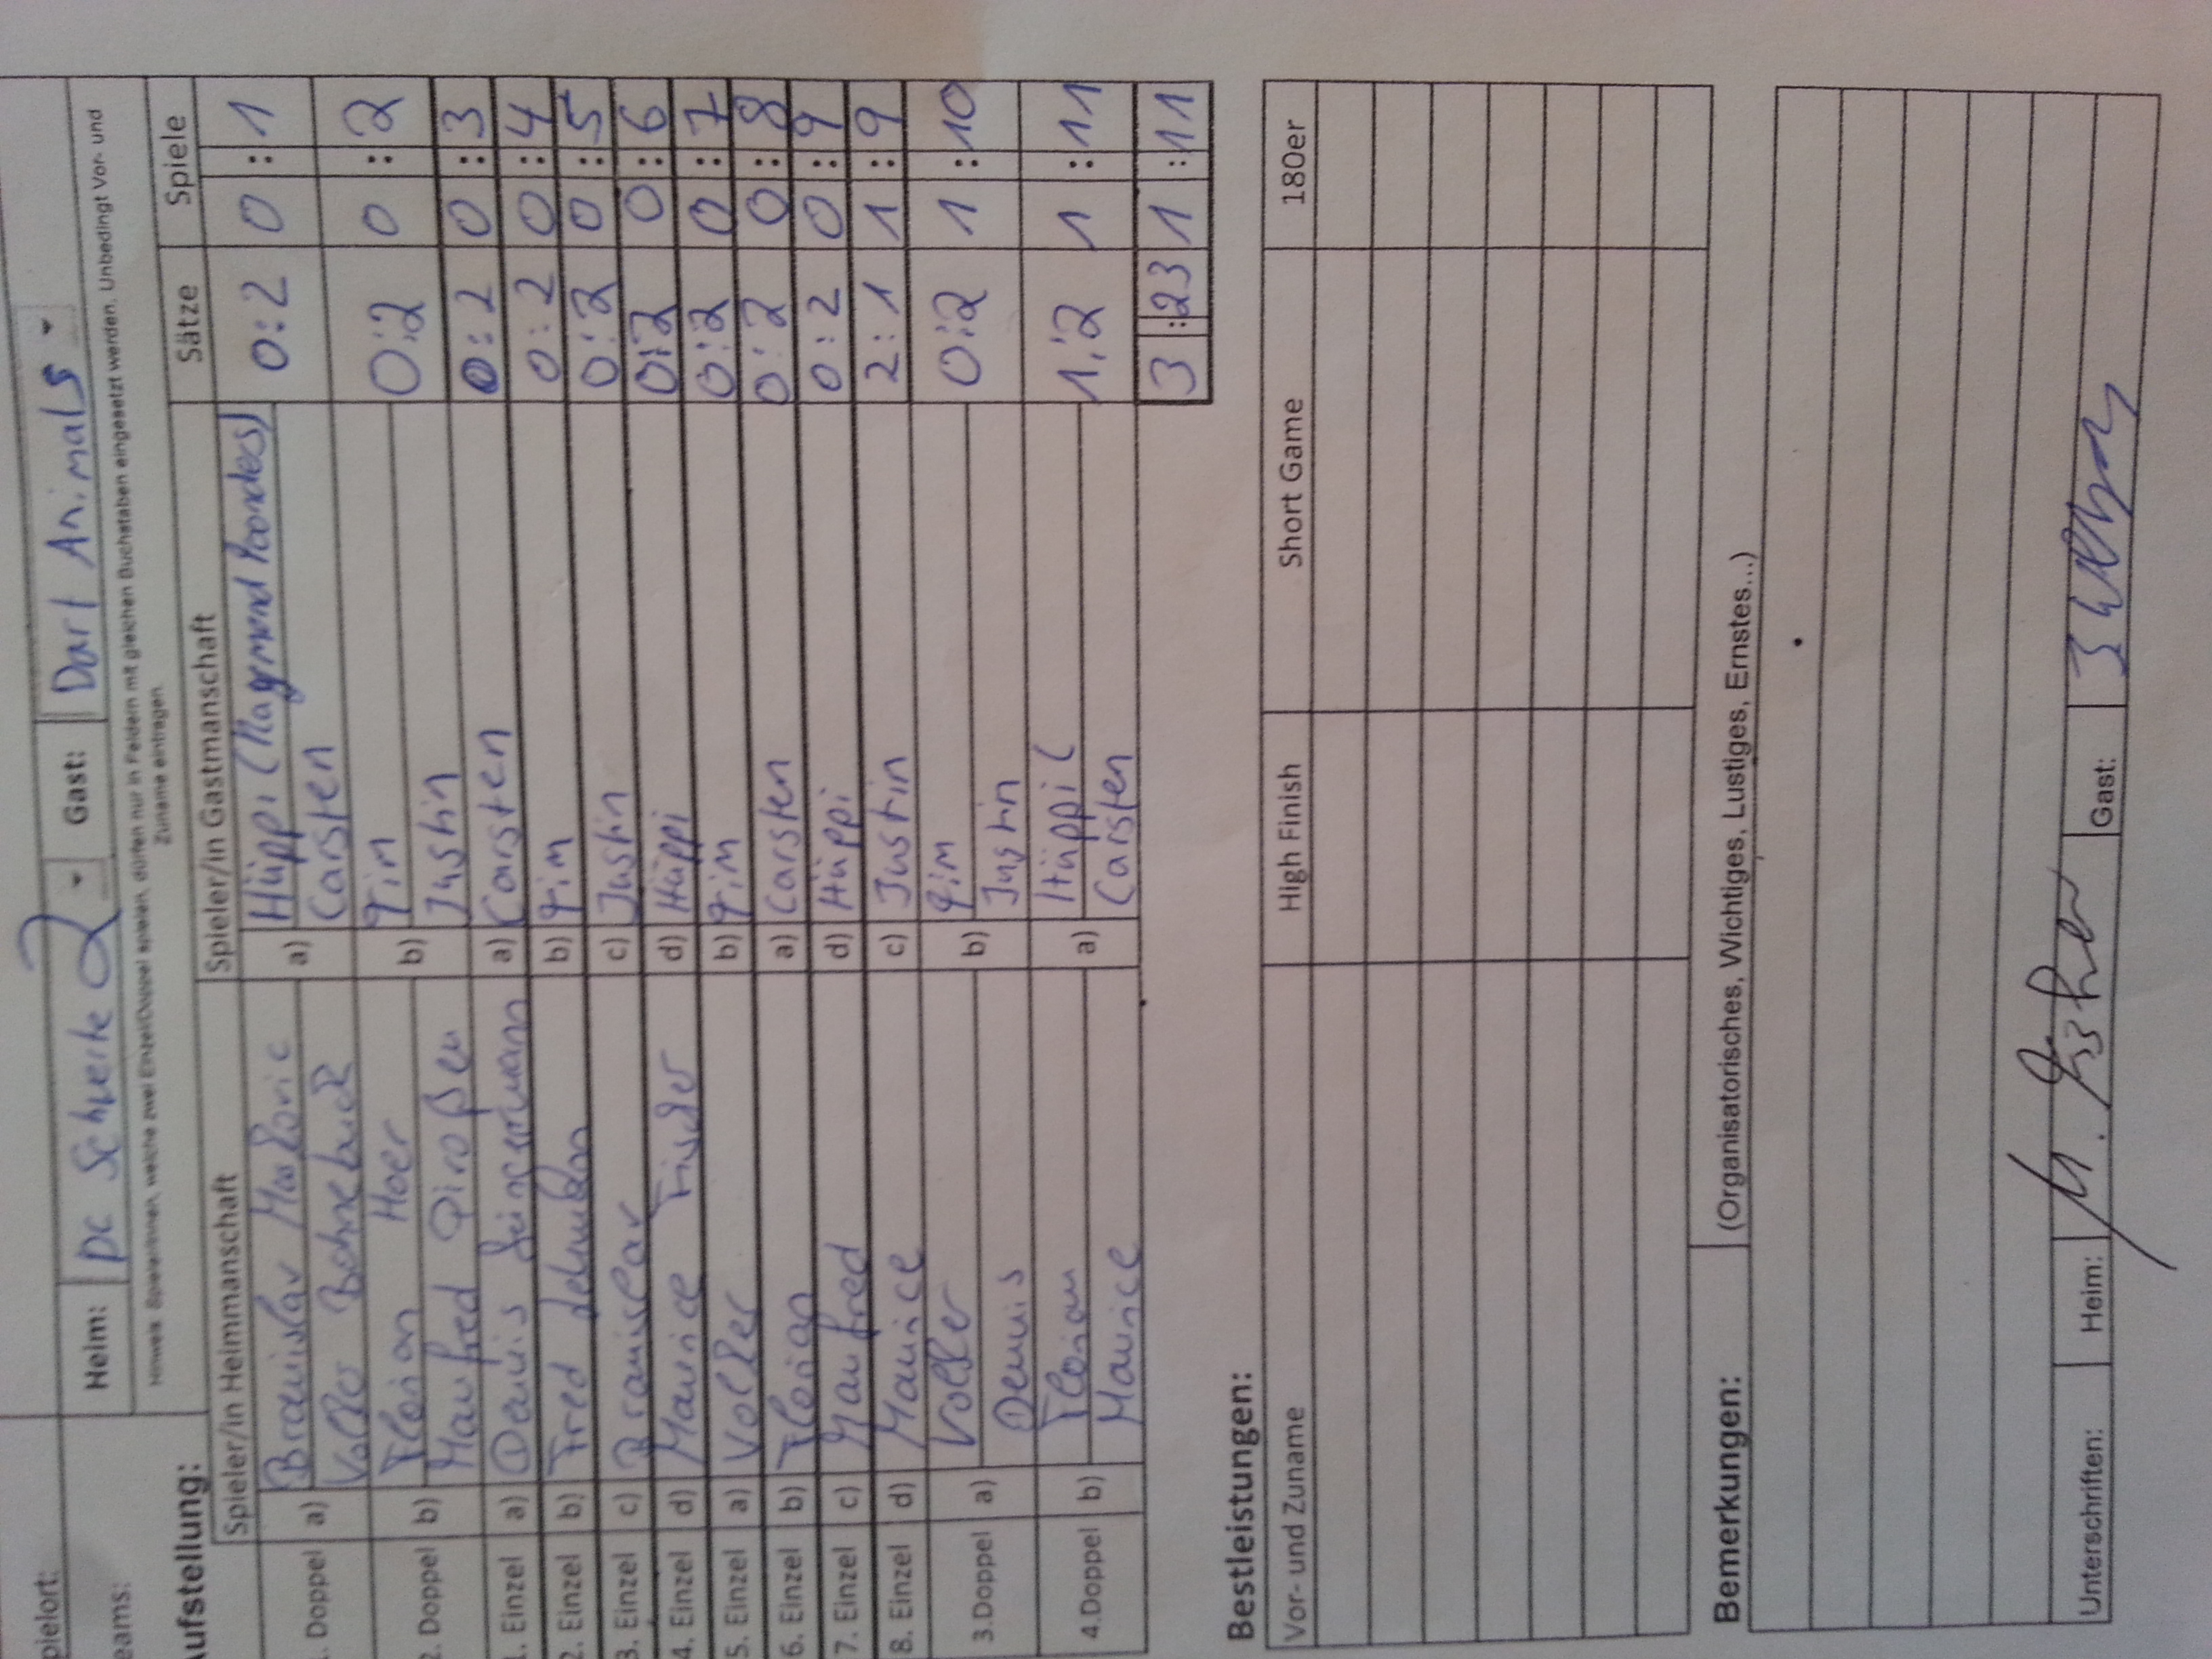 pielort:
eams: Heim: DC Schwerte 2 Gast: Dart Animals
Hinweis: Spieler/innen, welche zwei Einzel/Doppel spielen, dürfen nur in Feldern mit gleichen Buchstaben eingesetzt werden. Unbedingt Vor- und
Zuname eintragen.
Aufstellung:
Spieler/in Heimmanschaft Spieler/in Gastmanschaft Sätze Spiele
. Doppel a) Branislav a) Hüppi ( 0:2 0 : 1
Volker Carsten
2. Doppel b) Florian Hoer b) Tim 0:2 0 : 2
Manfred Justin
1. Einzel a) Dennis a) Carsten 0:2 0 : 3
2. Einzel b) Fred b) Tim 0:2 0 : 4
3. Einzel c) Branislav c) Justin 0:2 0 : 5
4. Einzel d) Maurice Fischer d) Hüppi 0:2 0 : 6
5. Einzel a) Volker b) Tim 0:2 0 : 7
6. Einzel b) Florian a) Carsten 0:2 0 : 8
7. Einzel c) Manfred d) Hüppi 0:2 0 : 9
8. Einzel d) Maurice c) Justin 2:1 1 : 9
3.Doppel a) Volker b) Tim 0:2 1 : 10
Dennis Justin
4.Doppel b) Florian a) Hüppi ( 1:2 1 : 11
Maurice Carsten
3 : 23 1 : 11
Bestleistungen:
Vor- und Zuname High Finish Short Game 180er
Bemerkungen: (Organisatorisches, Wichtiges, Lustiges, Ernstes...)
Unterschriften: Heim: M. Fischer Gast: